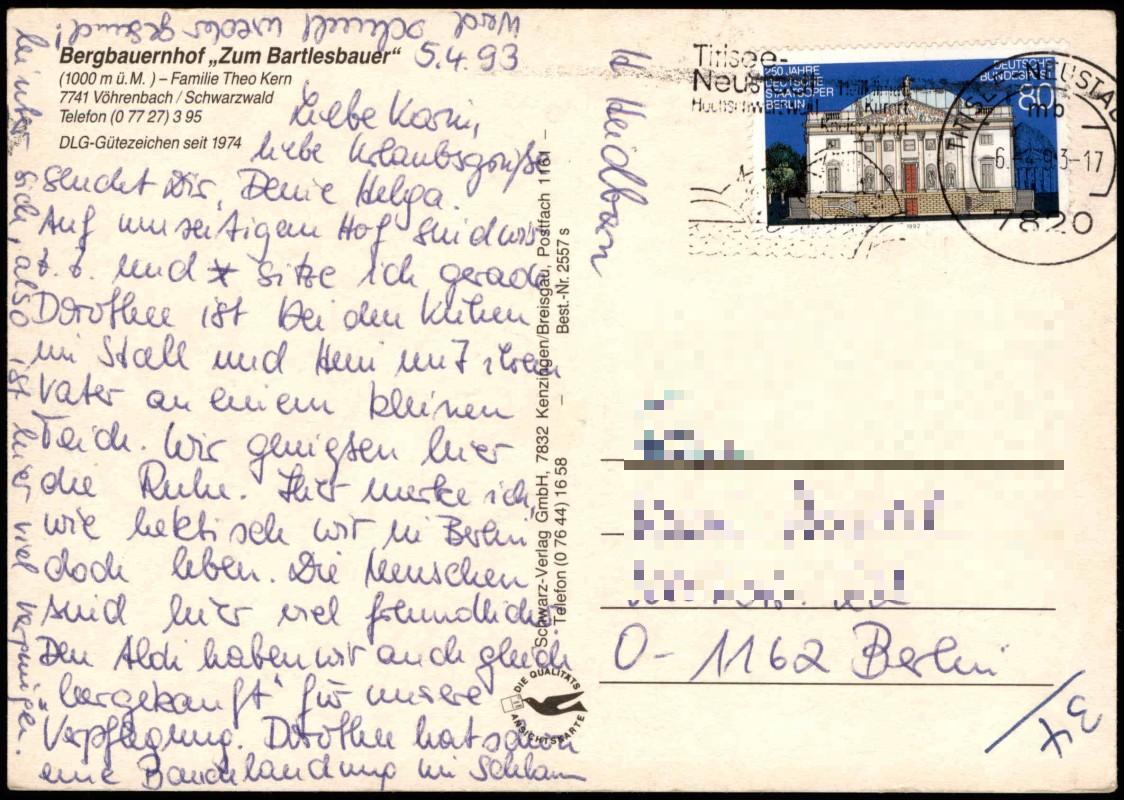 Bergbauernhof „Zum Bartlesbauer“
(1000 m ü. M. ) – Familie Theo Kern
7741 Vöhrenbach / Schwarzwald
Telefon (0 77 27) 3 95
DLG-Gütezeichen seit 1974
5.4.93
Liebe Karin,
liebe Urlaubsgrüße
sendet Dir, Deine Helga.
Auf umseitigen Hof sind wir
z. Z. und sitze ich gerade
Dorothee ist bei den Kühen
im Stall und Heni mit ihrem
Vater an einem kleinen
Teich. Wir genießen hier
die Ruhe. Hier merke ich,
wie hektisch wir in Berlin
doch leben. Die Menschen
sind hier viel freundlicher.
Den Aldi haben wir auch gleich
"hergekauft" für unsere
Verpflegung. Dorothee hat schon
eine Bauchlandung im Schlamm
hinter sich, also ist hier viel Vergnügen.
Werd schnell wieder gesund!
Schwarz-Verlag GmbH, 7832 Kenzingen/Breisgau, Postfach 1161 –
Telefon (0 76 44) 16 58 – Best.-Nr. 2557 s
DIE QUALITÄTS
ANSICHTSKARTE
Titisee-
Neus
Heilklimat
Kurort
250 JAHRE
DEUTSCHE
STAATSOPER
BERLIN
DEUTSCHE
BUNDESPOST
80
1992
TITISEE-NEUSTADT
mb
6.-4.93-17
7820
O-1162 Berlin
34